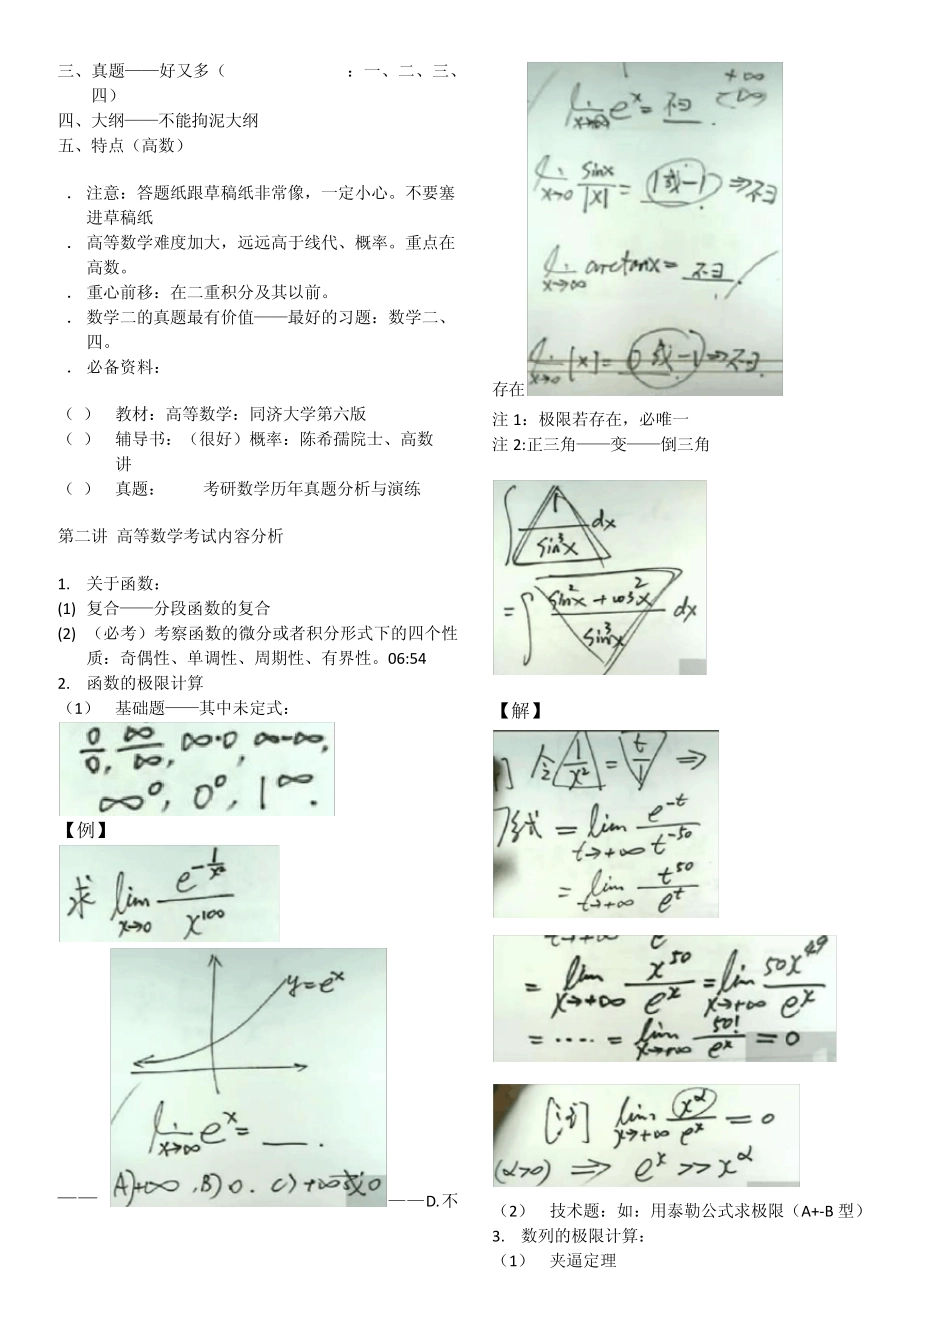 三、真题——好又多（ ：一、二、三、
四）
四、大纲——不能拘泥大纲
五、特点（高数）
. 注意：答题纸跟草稿纸非常像，一定小心。不要塞
进草稿纸
. 高等数学难度加大，远远高于线代、概率。重点在
高数。
. 重心前移：在二重积分及其以前。
. 数学二的真题最有价值——最好的习题：数学二、
四。
. 必备资料：
（ ） 教材：高等数学：同济大学第六版
（ ） 辅导书：（很好）概率：陈希孺院士、高数
讲
（ ） 真题： 考研数学历年真题分析与演练
第二讲 高等数学考试内容分析
1. 关于函数：
(1) 复合——分段函数的复合
(2) （必考）考察函数的微分或者积分形式下的四个性
质：奇偶性、单调性、周期性、有界性。06:54
2. 函数的极限计算
（1） 基础题——其中未定式：
0/0, ∞/∞, ∞·0, ∞-∞,
∞⁰, 0⁰, 1^∞.
【例】
求 lim x→0 e^(-1/x²) / x¹⁰⁰
y=eˣ
lim x→∞ eˣ= __ .
—— A)+∞ ,B)0. C)+∞或0 ——D.不
+∞
-∞
lim x→∞ eˣ= 不∃ .
lim x→0 sinx/|x| = 1或-1 ⇒不∃
lim x→∞ arctanx= 不∃
lim x→0 [x]= 0或-1⇒不∃.
存在
注 1：极限若存在，必唯一
注 2:正三角——变——倒三角
∫ 1/sin³x dx
=∫ (sin²x+cos²x)/sin³x dx
【解】
] 令 1/x² = t/1 ⇒
原式 = lim t→+∞ e^(-t)/t^(-50)
= lim t→+∞ t⁵⁰/eᵗ
t→+∞ e
= lim x→+∞ x⁵⁰/eˣ = lim x→+∞ 50x⁴⁹/eˣ
= ···· = lim x→+∞ 50!/eˣ = 0
[注] lim x→+∞ x^α/eˣ = 0
(α>0) ⇒ eˣ >> x^α
（2） 技术题：如：用泰勒公式求极限（A+-B 型）
3. 数列的极限计算：
（1） 夹逼定理